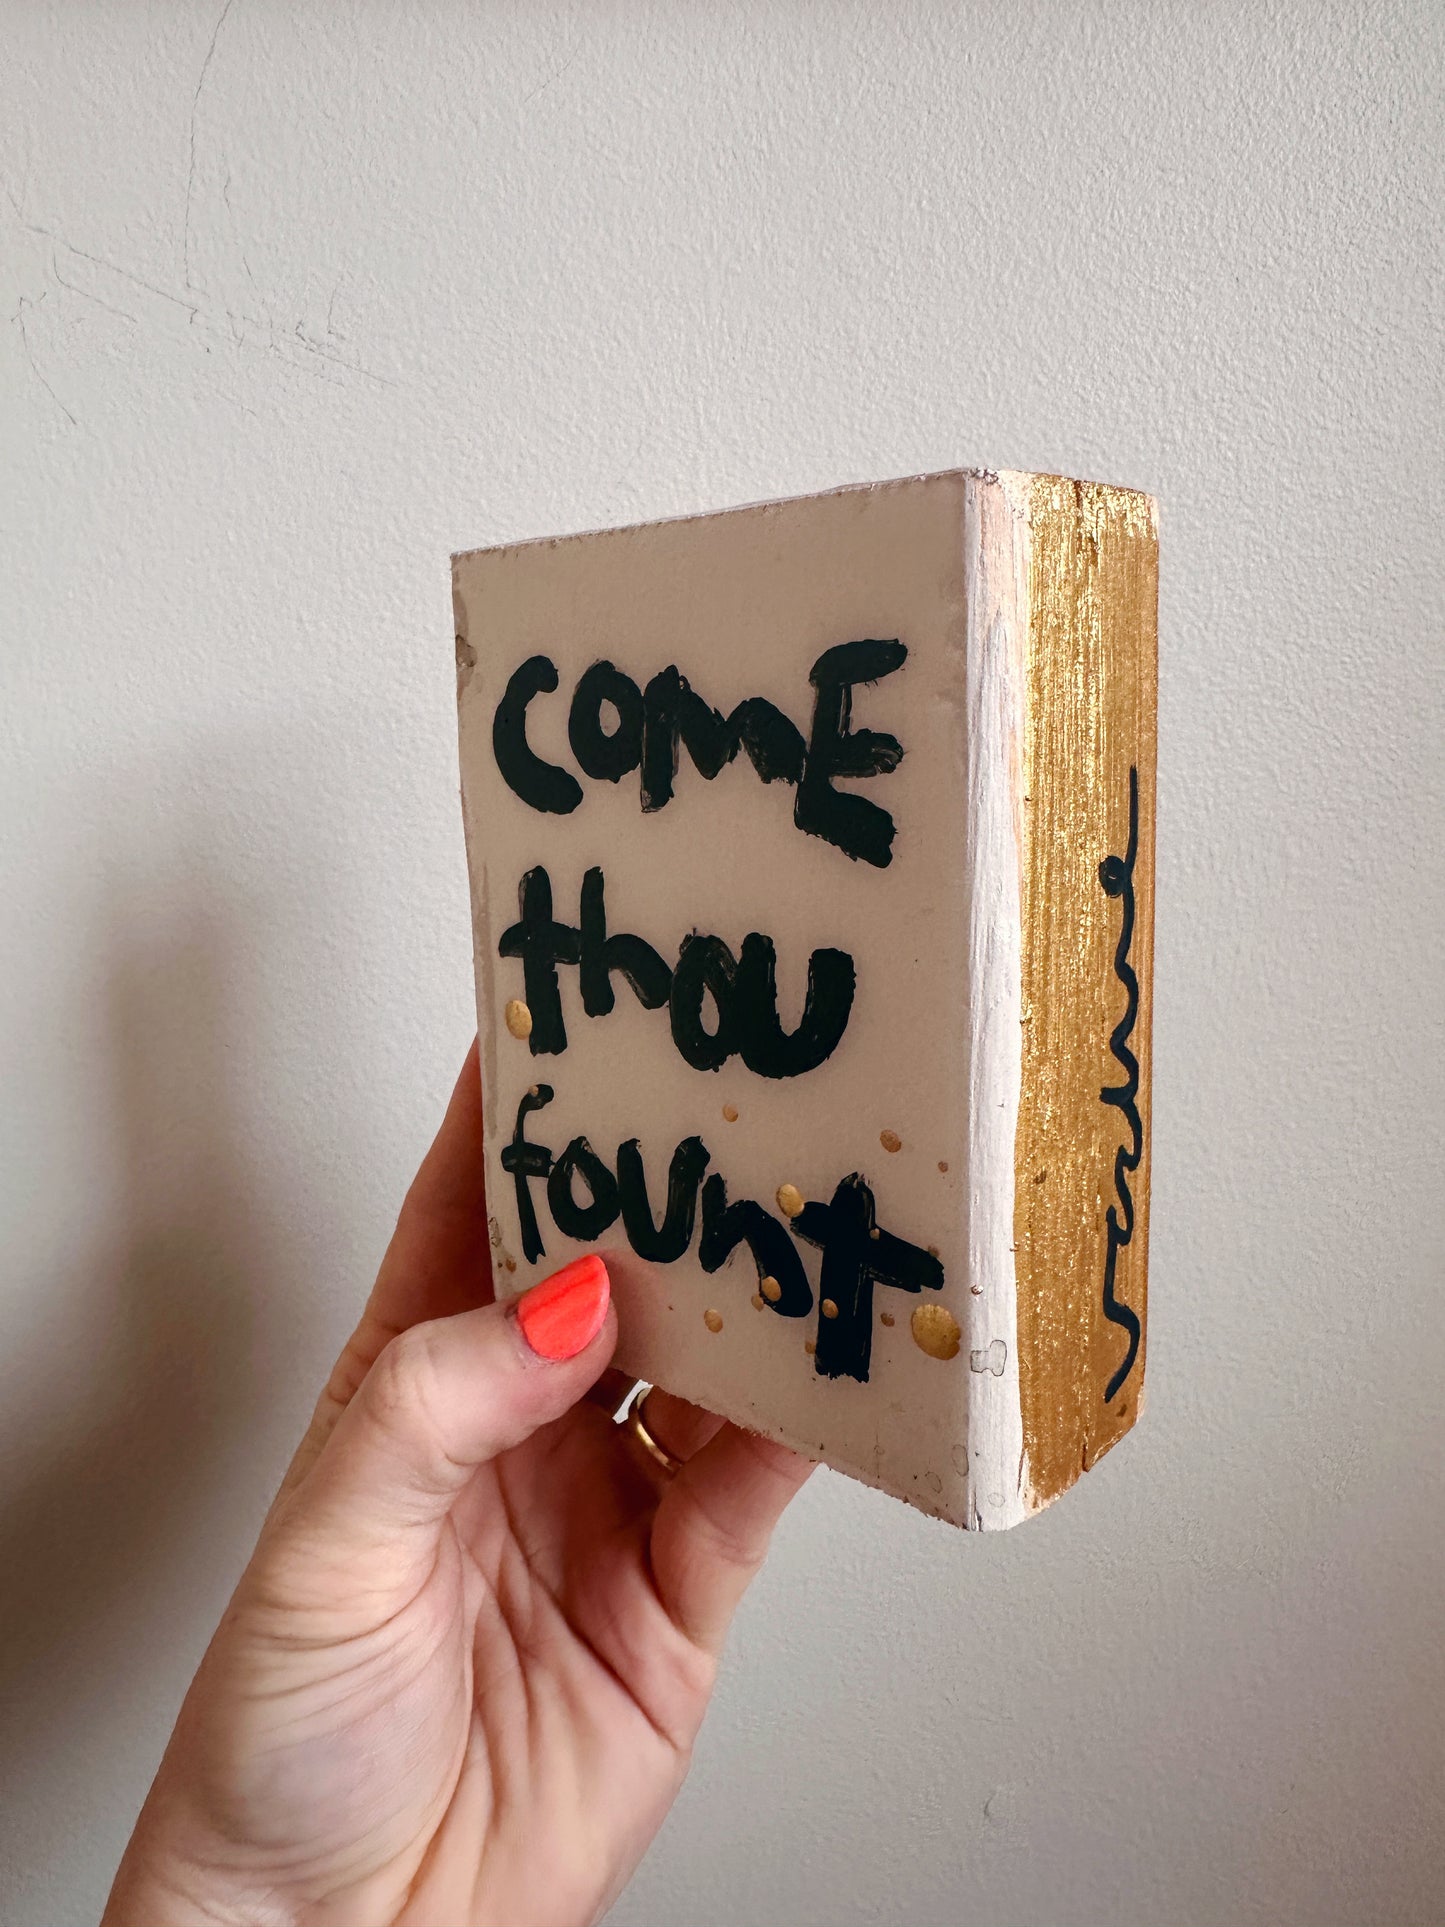 comE
thou
fount